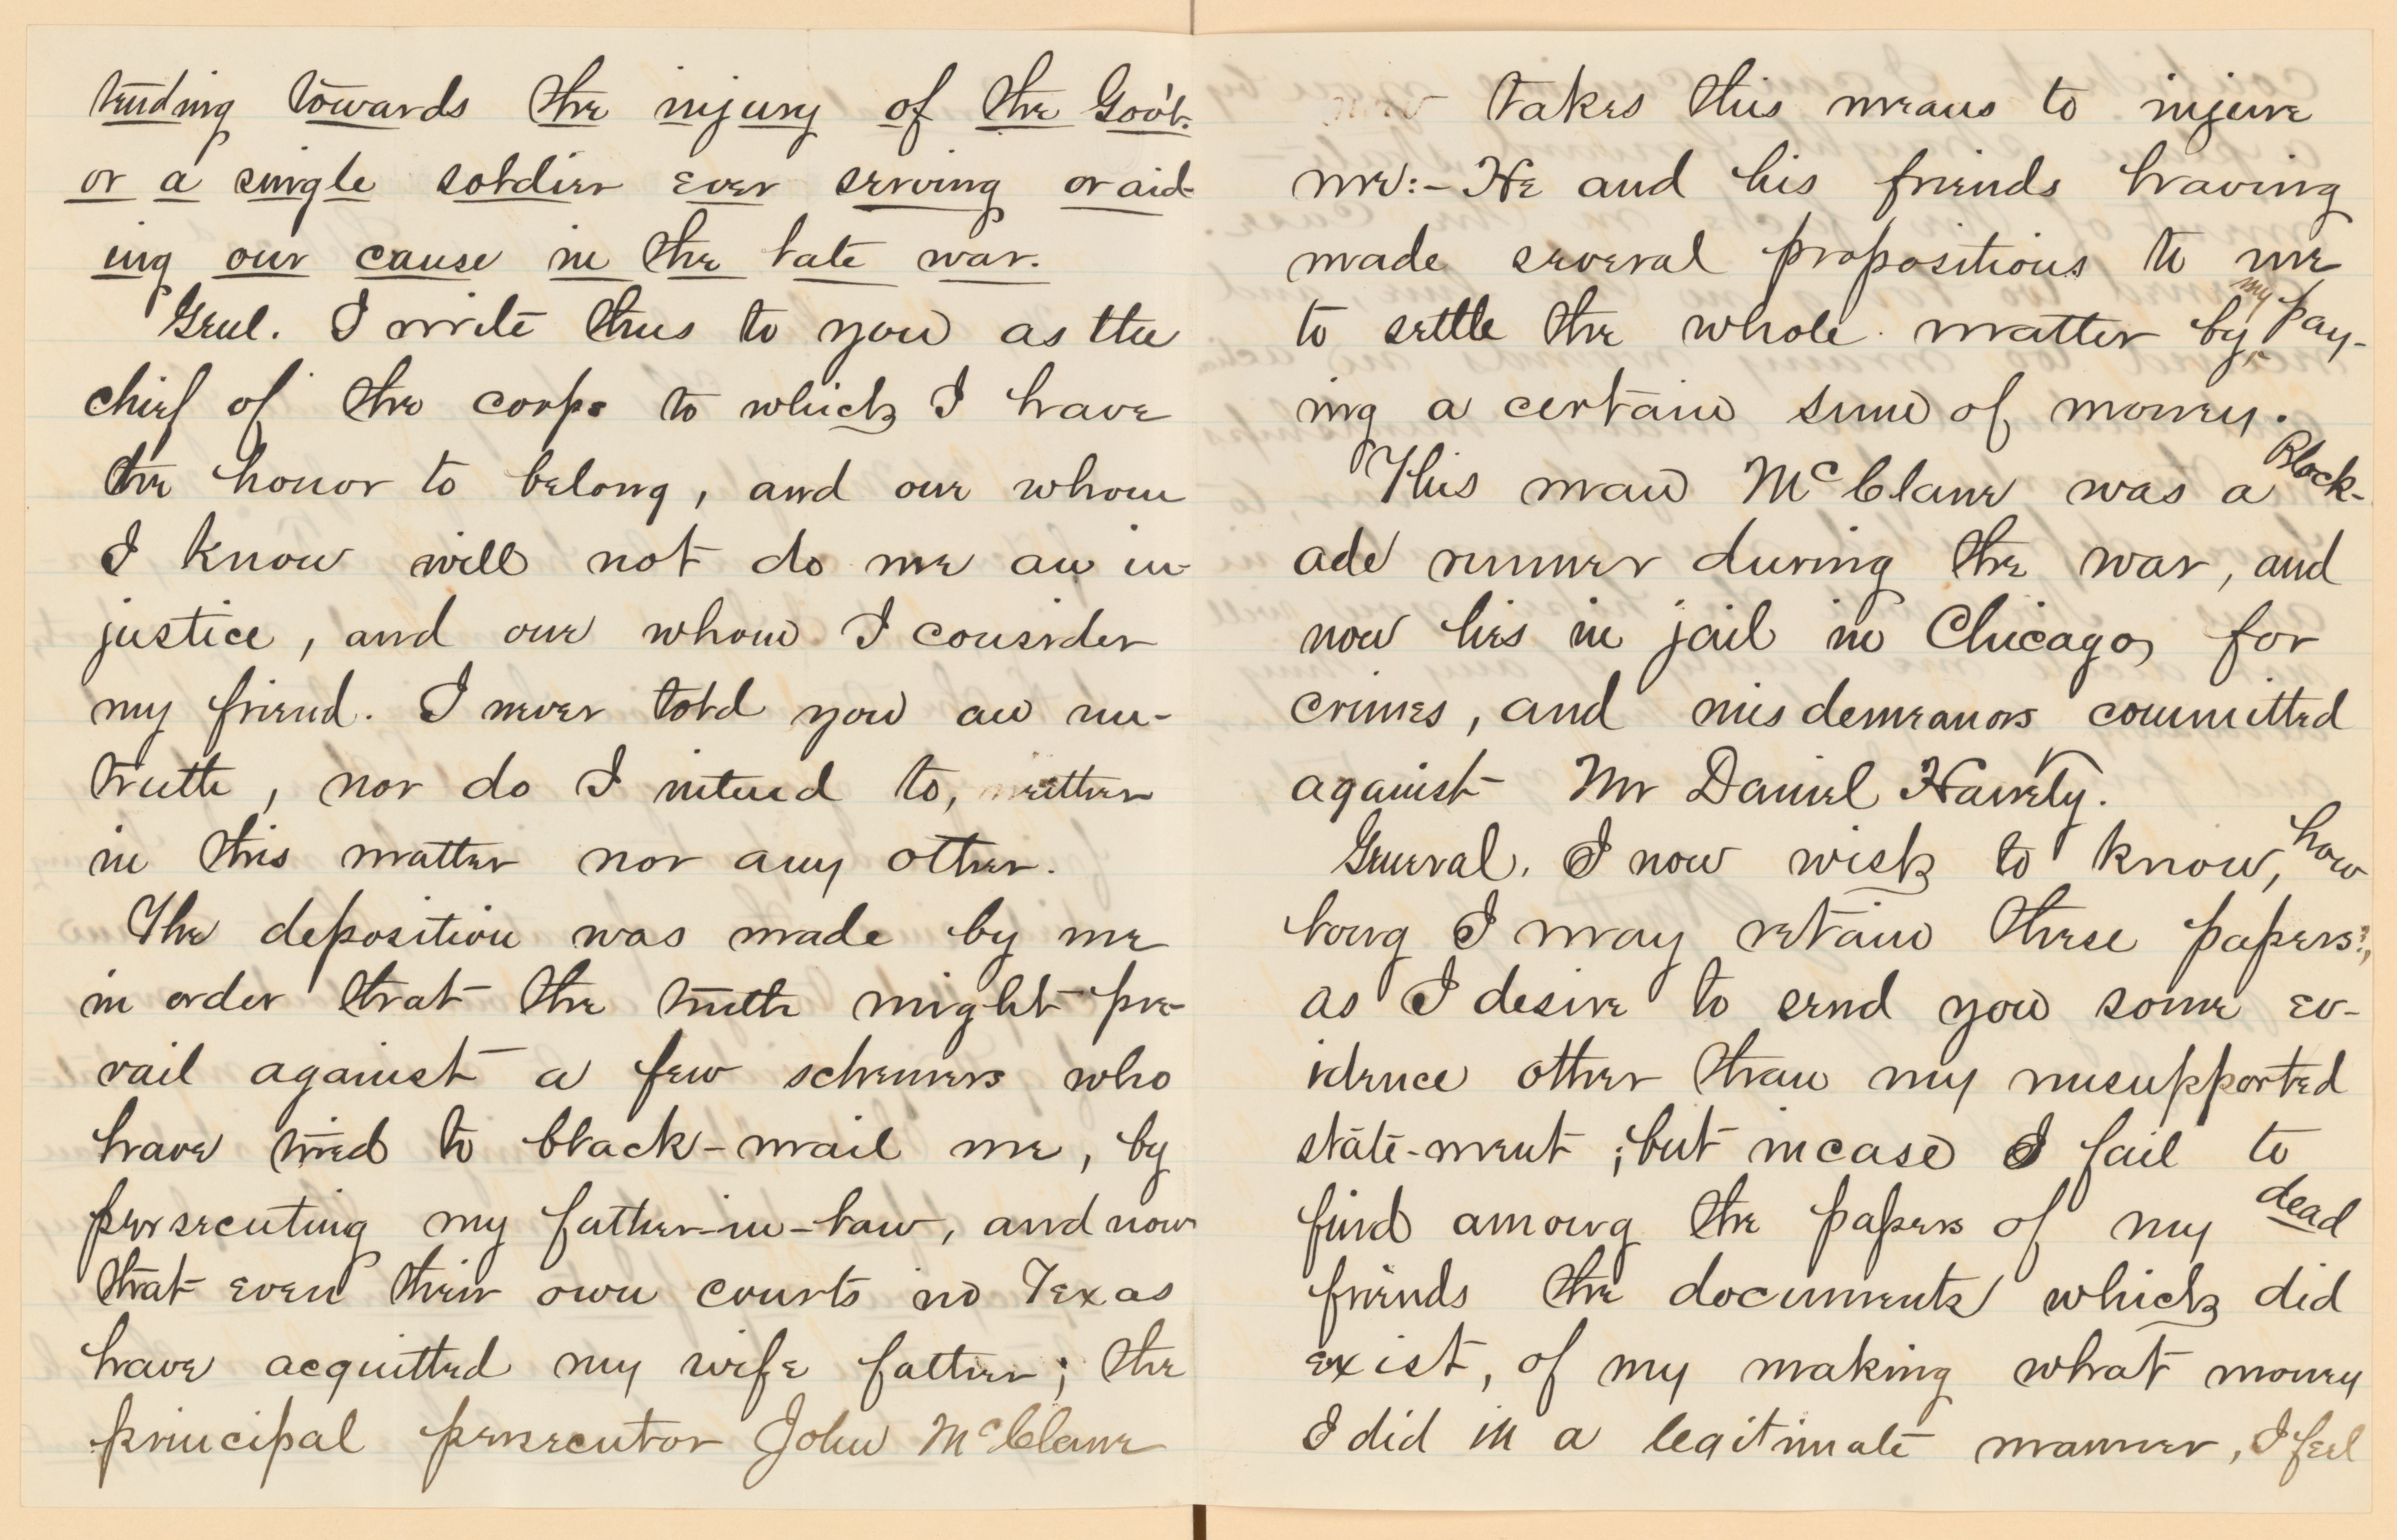 tending towards the injury of the Gov't.
or a single soldier ever serving or aid-
ing our cause in the late war.
Genl. I write thus to you as the
chief of the corps to which I have
the honor to belong, and one whom
I know will not do me an in-
justice, and one whom I consider
my friend. I never told you an un-
truth, nor do I intend to, neither
in this matter nor any other.
The deposition was made by me
in order that the truth might pre-
vail against a few schemers who
have tried to black-mail me, by
persecuting my father-in-law, and now
that even their own courts in Texas
have acquitted my wife father; the
principal persecutor John McClane
now takes this means to injure
me:- He and his friends having
made several propositions to me
to settle the whole matter by my pay-
ing a certain sum of money.
This man McClane was a Block-
ade runner during the war, and
now lies in jail in Chicago, for
crimes, and misdemeanors committed
against Mr Daniel
General. I now wish to know, how
long I may retain these papers?,
as I desire to send you some ev-
idence other than my unsupported
state-ment; but incase I fail to
find among the papers of my dead
friends the documents which did
exist, of my making what money
I did in a legitimate manner, I feel